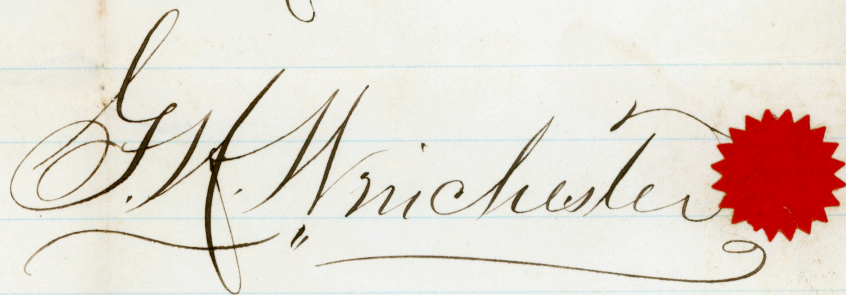 G. H. Winchester